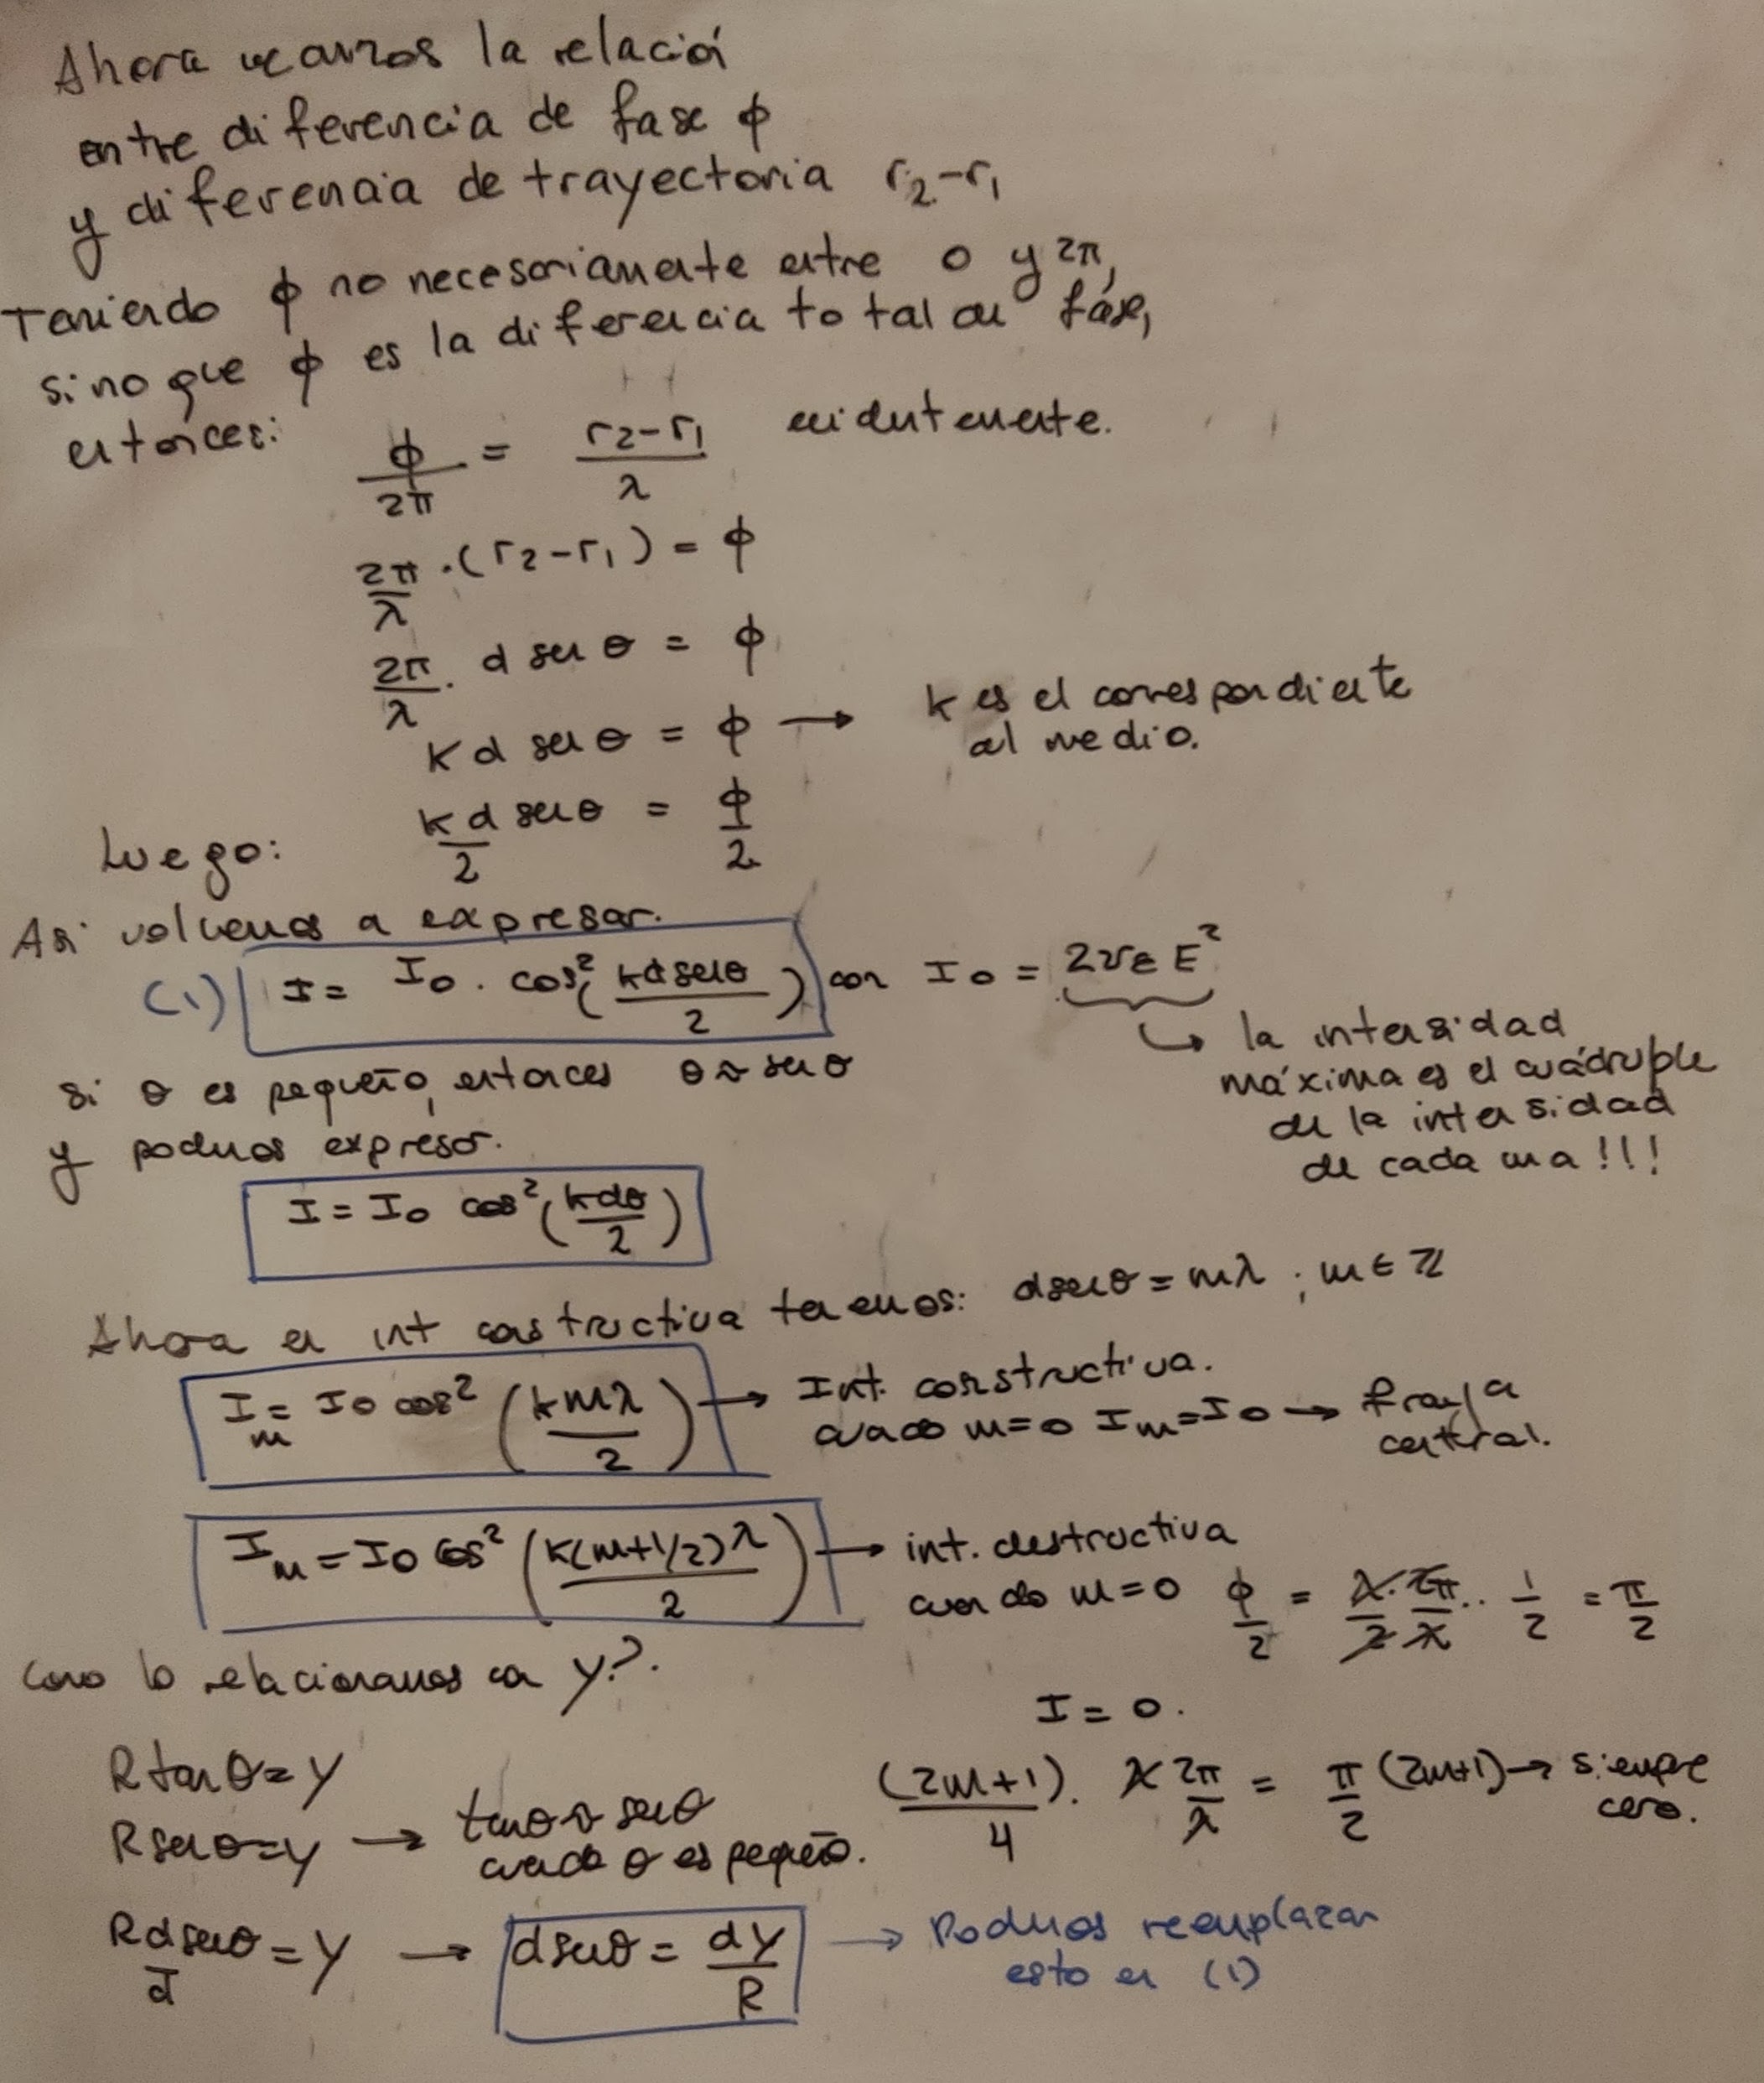 Ahora veamos la relación
entre diferencia de fase ϕ
y diferencia de trayectoria r₂-r₁
Teniendo ϕ no necesariamente entre 0 y 2π,
sino que ϕ es la diferencia total de fase,
entonces:
ϕ/2π = (r₂-r₁)/λ evidentemente.
2π/λ · (r₂-r₁) = ϕ
2π/λ · d sen θ = ϕ
k d sen θ = ϕ → k es el correspondiente
al medio.
Luego: kd sen θ/2 = ϕ/2
Así volvemos a expresar.
(1) I = I₀ · cos²(kd sen θ/2) con I₀ = 2vεE²
↳ la intensidad
máxima es el cuádruple
de la intensidad
de cada una!!!
si θ es pequeño, entonces θ≈sen θ
y podemos expresar.
I = I₀ cos²(kdθ/2)
Ahora en int constructiva tenemos: d sen θ = mλ ; m∈ℤ
Iₘ = I₀ cos² (kmλ/2) → Int. constructiva.
cuando m=0 Iₘ=I₀ → franja
central.
Iₘ = I₀ cos² (k(m+1/2)λ/2) → int. destructiva
cuando m=0 ϕ/2 = λ/2 · 2π/λ · 1/2 = π/2
I = 0.
(2m+1)/4 · λ 2π/λ = π/2 (2m+1) → siempre
cero.
Como lo relacionamos con y?.
R tan θ = y
R sen θ = y → tan θ ≈ sen θ
cuando θ es pequeño.
R d sen θ/d = y → d sen θ = dy/R → Podemos reemplazar
esto en (1)